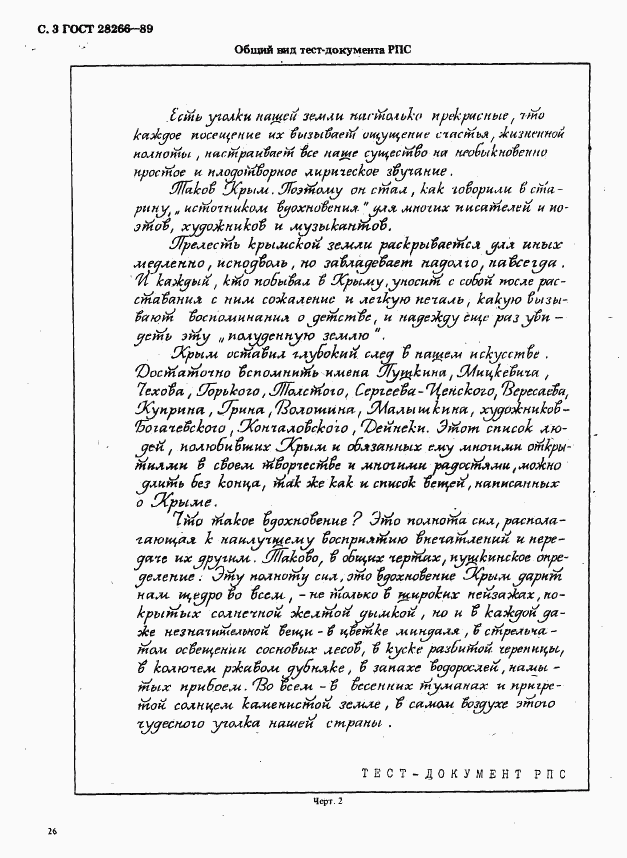 С. 3 ГОСТ 28266—89
Общий вид тест-документа РПС
Есть уголки нашей земли настолько прекрасные, что
каждое посещение их вызывает ощущение счастья, жизненной
полноты, настраивает все наше существо на необыкновенно
простое и плодотворное лирическое звучание.
Таков Крым. Поэтому он стал, как говорили в ста-
рину, „источником вдохновения" для многих писателей и по-
этов, художников и музыкантов.
Прелесть крымской земли раскрывается для иных
медленно, исподволь, но завладевает надолго, навсегда.
И каждый, кто побывал в Крыму, уносит с собой после рас-
ставания с ним сожаление и легкую печаль, какую вызы-
вают воспоминания о детстве, и надежду еще раз уви-
деть эту „полуденную землю".
Крым оставил глубокий след в нашем искусстве.
Достаточно вспомнить имена Пушкина, Мицкевича,
Чехова, Горького, Толстого, Сергеева-Ценского, Вересаева,
Куприна, Грина, Волошина, Малышкина, художников-
Богачевского, Кончаловского, Дейнеки. Этот список лю-
дей, полюбивших Крым и обязанных ему многими откры-
тиями в своем творчестве и многими радостями, можно
длить без конца, так же как и список вещей, написанных
о Крыме.
Что такое вдохновение? Это полнота сил, распола-
гающая к наилучшему восприятию впечатлений и пере-
даче их другим. Таково, в общих чертах, пушкинское опре-
деление. Эту полноту сил, это вдохновение Крым дарит
нам щедро во всем, - не только в широких пейзажах, по-
крытых солнечной желтой дымкой, но и в каждой да-
же незначительной вещи - в цветке миндаля, в стрельча-
том освещении сосновых лесов, в куске разбитой черепицы,
в колючем ржавом дубняке, в запахе водорослей, намы-
тых прибоем. Во всем - в весенних туманах и пригре-
той солнцем каменистой земле, в самом воздухе этого
чудесного уголка нашей страны.
ТЕСТ-ДОКУМЕНТ РПС
Черт. 2
26